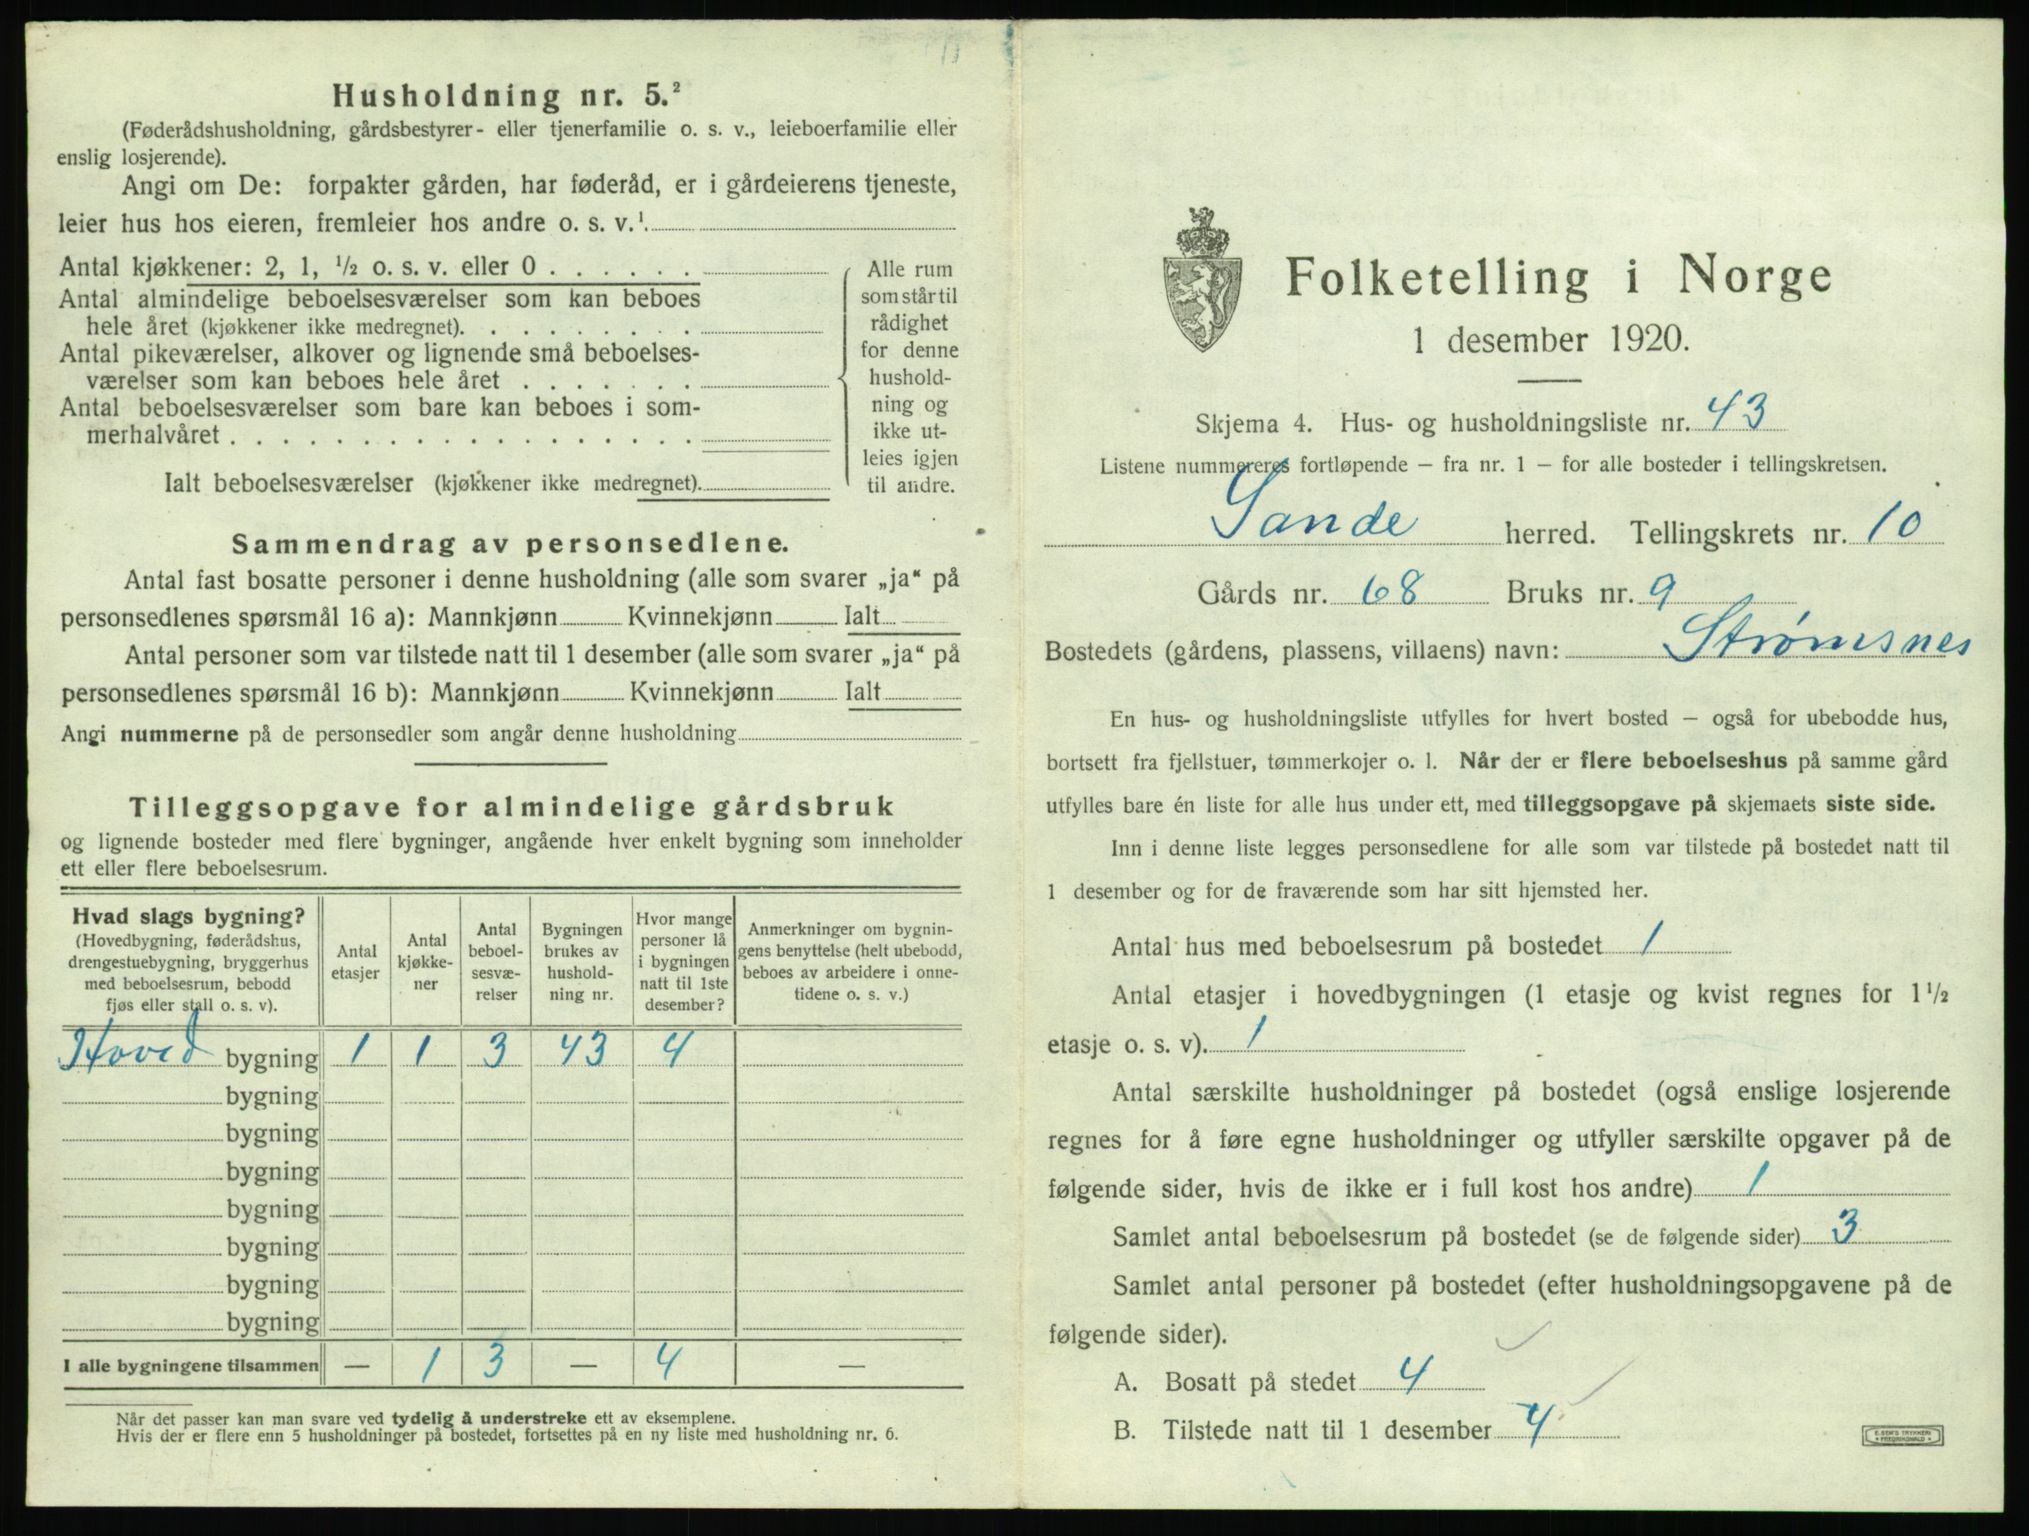 Husholdning nr. 5.²
(Føderådshusholdning, gårdsbestyrer- eller tjenerfamilie o. s. v., leieboerfamilie eller
enslig losjerende).
Angi om De: forpakter gården, har føderåd, er i gårdeierens tjeneste,
leier hus hos eieren, fremleier hos andre o. s. v.¹
Antal kjøkkener: 2, 1, ½ o. s. v. eller 0 . . . . . .
Antal almindelige beboelsesværelser som kan beboes
hele året (kjøkkener ikke medregnet). . . . . . . . .
Antal pikeværelser, alkover og lignende små beboelses-
værelser som kan beboes hele året . . . . . . .
Antal beboelsesværelser som bare kan beboes i som-
merhalvåret . . . . . . . . . . . . . . . . . .
Ialt beboelsesværelser (kjøkkener ikke medregnet).
Alle rum
som står til
rådighet
for denne
hushold-
ning og
ikke ut-
leies igjen
til andre.
Sammendrag av personsedlene.
Antal fast bosatte personer i denne husholdning (alle som svarer „ja“ på
personsedlenes spørsmål 16 a): Mannkjønn Kvinnekjønn Ialt
Antal personer som var tilstede natt til 1 desember (alle som svarer „ja“ på
personsedlenes spørsmål 16 b): Mannkjønn Kvinnekjønn Ialt
Angi nummerne på de personsedler som angår denne husholdning
Tilleggsopgave for almindelige gårdsbruk
og lignende bosteder med flere bygninger, angående hver enkelt bygning som inneholder
ett eller flere beboelsesrum.
Hvad slags bygning?
(Hovedbygning, føderådshus,
drengestuebygning, bryggerhus
med beboelsesrum, bebodd
fjøs eller stall o. s. v).
Antal
etasjer
Antal
kjøkke-
ner
Antal
beboel-
sesvæ-
relser
Bygningen
brukes av
hushold-
ning nr.
Hvor mange
personer lå
i bygningen
natt til 1ste
desember?
Anmerkninger om bygnin-
gens benyttelse (helt ubebodd,
beboes av arbeidere i onne-
tidene o. s. v.)
Hoved bygning 1 1 3 43 4
bygning
bygning
bygning
bygning
bygning
bygning
bygning
I alle bygningene tilsammen — 1 3 — 4 —
Når det passer kan man svare ved tydelig å understreke ett av eksemplene.
Hvis der er flere enn 5 husholdninger på bostedet, fortsettes på en ny liste med husholdning nr. 6.
Folketelling i Norge
1 desember 1920.
Skjema 4. Hus- og husholdningsliste nr. 43
Listene nummereres fortløpende – fra nr. 1 – for alle bosteder i tellingskretsen.
Sande herred. Tellingskrets nr. 10
Gårds nr. 68 Bruks nr. 9
Bostedets (gårdens, plassens, villaens) navn: Strømsnes
En hus- og husholdningsliste utfylles for hvert bosted – også for ubebodde hus,
bortsett fra fjellstuer, tømmerkojer o. l. Når der er flere beboelseshus på samme gård
utfylles bare én liste for alle hus under ett, med tilleggsopgave på skjemaets siste side.
Inn i denne liste legges personsedlene for alle som var tilstede på bostedet natt til
1 desember og for de fraværende som har sitt hjemsted her.
Antal hus med beboelsesrum på bostedet 1
Antal etasjer i hovedbygningen (1 etasje og kvist regnes for 1½
etasje o. s. v). 1
Antal særskilte husholdninger på bostedet (også enslige losjerende
regnes for å føre egne husholdninger og utfyller særskilte opgaver på de
følgende sider, hvis de ikke er i full kost hos andre) 1
Samlet antal beboelsesrum på bostedet (se de følgende sider) 3
Samlet antal personer på bostedet (efter husholdningsopgavene på de
følgende sider).
A. Bosatt på stedet 4
B. Tilstede natt til 1 desember 4